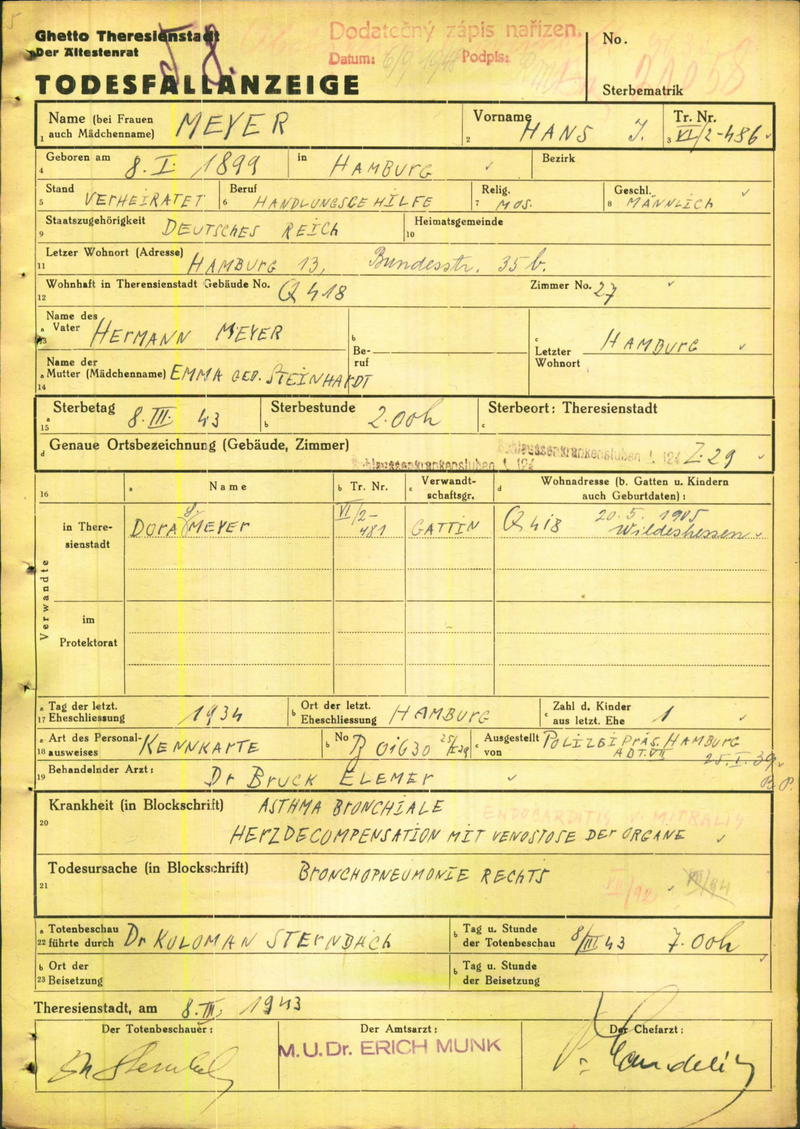 Ghetto Theresienstadt
Der Ältestenrat
58.
Dodatečný zápis nařízen.
Datum: 6/9 1948 Podpis:
No.
TODESFALLANZEIGE
Sterbematrik
Name (bei Frauen auch Mädchenname) MEYER
1
Vorname HANS J.
2
Tr. Nr. VI/2-486
3
Geboren am 8. I. 1899 in HAMBURG Bezirk
4
Stand VERHEIRATET Beruf HANDLUNGSGEHILFE Relig. MOS. Geschl. MÄNNLICH
5 6 7 8
Staatszugehörigkeit DEUTSCHES REICH Heimatsgemeinde
9 10
Letzer Wohnort (Adresse) HAMBURG 13, Bundesstr. 35 b.
11
Wohnhaft in Theresienstadt Gebäude No. Q 418 Zimmer No. 27
12
Name des
a Vater HERMANN MEYER
13
b Be-
ruf
c Letzter
Wohnort HAMBURG
Name der
a Mutter (Mädchenname) EMMA GEB. STEINHARDT
14
a Sterbetag 8. III. 43 b Sterbestunde 2.00h c Sterbeort: Theresienstadt
15
d Genaue Ortsbezeichnung (Gebäude, Zimmer) L 124 Z. 29
16 a Name b Tr. Nr. c Verwandt-
schaftsgr. d Wohnadresse (b. Gatten u. Kindern
auch Geburtdaten) :
Verwandte
in There-
sienstadt
DORA MEYER VI/2-
481 GATTIN Q 418 20. 5. 1905
Wildeshessen
im
Protektorat
a Tag der letzt.
17 Eheschliessung 1934 b Ort der letzt.
Eheschliessung HAMBURG c Zahl d. Kinder
aus letzt. Ehe 1
a Art des Personal-
18 ausweises KENNKARTE b No B 01630 c Ausgestellt
von POLIZEI PRÄS. HAMBURG
25. I. 39.
19 Behandelnder Arzt: Dr BRUCK ELEMER
Krankheit (in Blockschrift) ASTHMA BRONCHIALE
ENDOCARDITIS V. MITRALIS
20 HERZDECOMPENSATION MIT VENOSTOSE DER ORGANE
Todesursache (in Blockschrift) BRONCHOPNEUMONIE RECHTS
21
a Totenbeschau
22 führte durch Dr KOLOMAN STERNBACH b Tag u. Stunde
der Totenbeschau 8/III 43 7.00h
b Ort der
23 Beisetzung b Tag u. Stunde
der Beisetzung
Theresienstadt, am 8. III. 1943
Der Totenbeschauer :
Der Amtsarzt :
M. U. Dr. ERICH MUNK
Der Chefarzt :